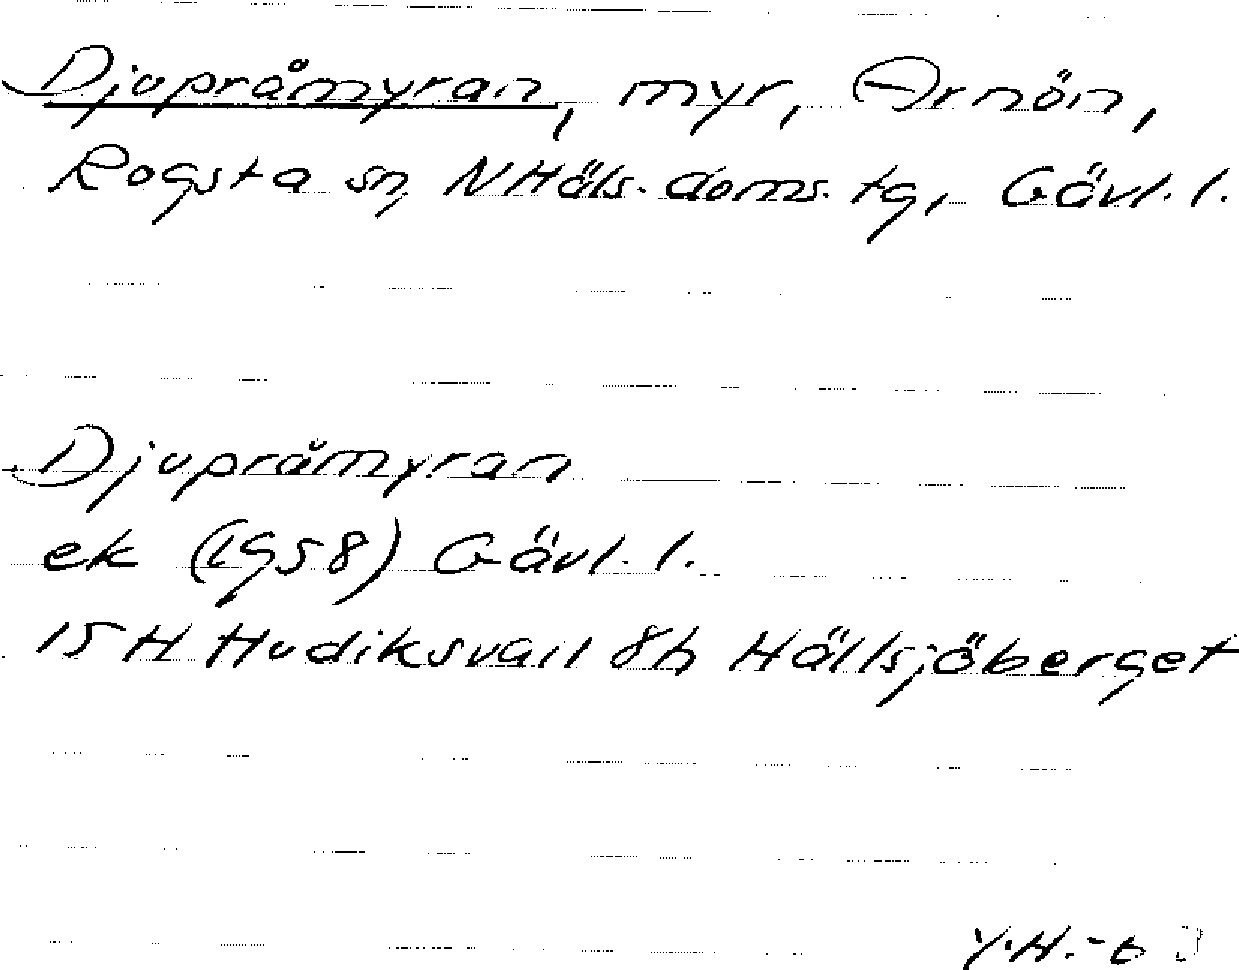 Djupråmyran, myr, Arnön,
Rogsta sn, NHäls. doms. tg, Gävl. l.
Djupråmyran
ek (1958) Gävl. l.
15H Hudiksvall 8h Hällsjöberget
Y.H.-6